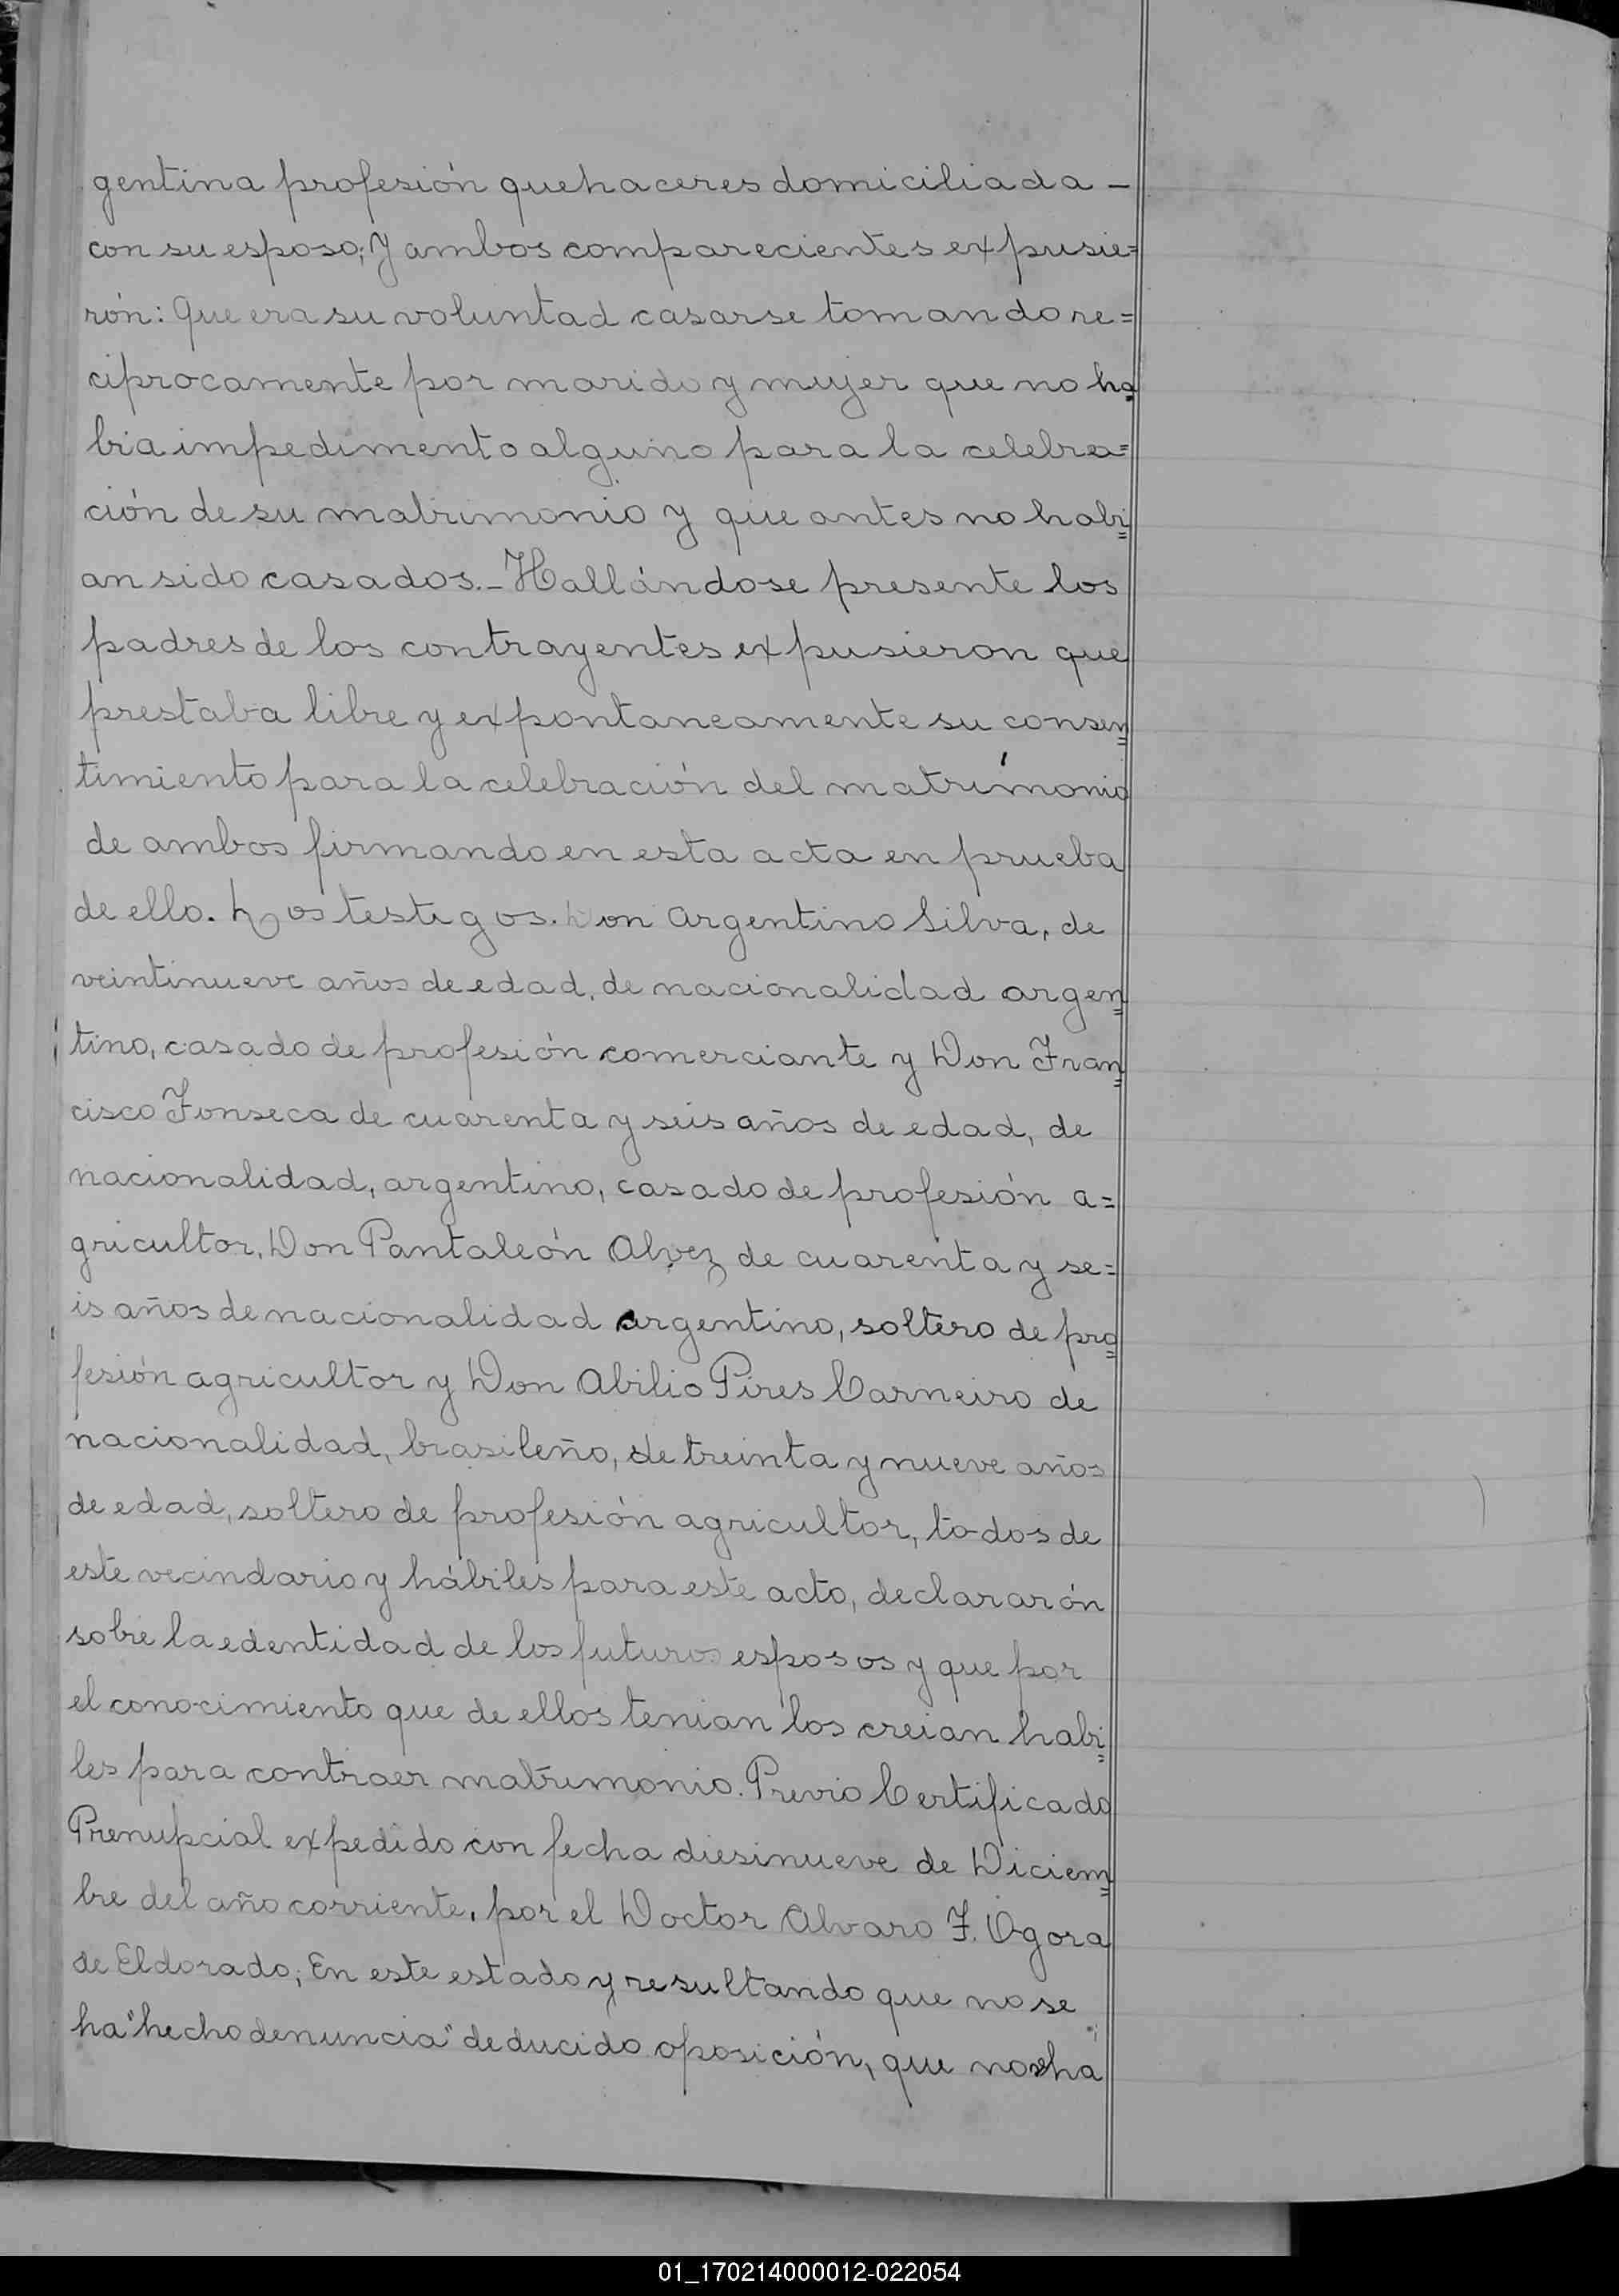 gentina profesión quehaceres domiciliada -
con su esposo; Y ambos comparecientes expusie=
rón: Que era su voluntad casarse tomando re=
ciprocamente por marido y mujer que no ha
bia impedimento alguno para la celebra=
ción de su matrimonio y que antes no habi
an sido casados. - Hallándose presente los
padres de los contrayentes expusieron que
prestaba libre y expontaneamente su consen
timiento para la celebración del matrimonio
de ambos firmando en esta acta en prueba
de ello. Los testigos. Don Argentino Silva, de
veintinueve años de edad, de nacionalidad argen
tino, casado de profesión comerciante y Don Fran
cisco Fonseca de cuarenta y seis años de edad, de
nacionalidad, argentino, casado de profesión a=
gricultor, Don Pantaleón Alvez de cuarenta y se=
is años de nacionalidad argentino, soltero de pro
fesión agricultor y Don Abilio Pires Carneiro de
nacionalidad, brasileño, de treinta y nueve años
de edad, soltero de profesión agricultor, todos de
este vecindario y hábiles para este acto, declararón
sobre la edentidad de los futuros esposos y que por
el conocimiento que de ellos tenian los creian habi
les para contraer matrimonio. Previo Certificado
Prenupcial expedido con fecha diesinueve de Diciem
bre del año corriente, por el Doctor Alvaro F. Ogora
de Eldorado; En este estado y resultando que no se
ha "hecho denuncia" deducido oposición, que no ha
01_170214000012-022054